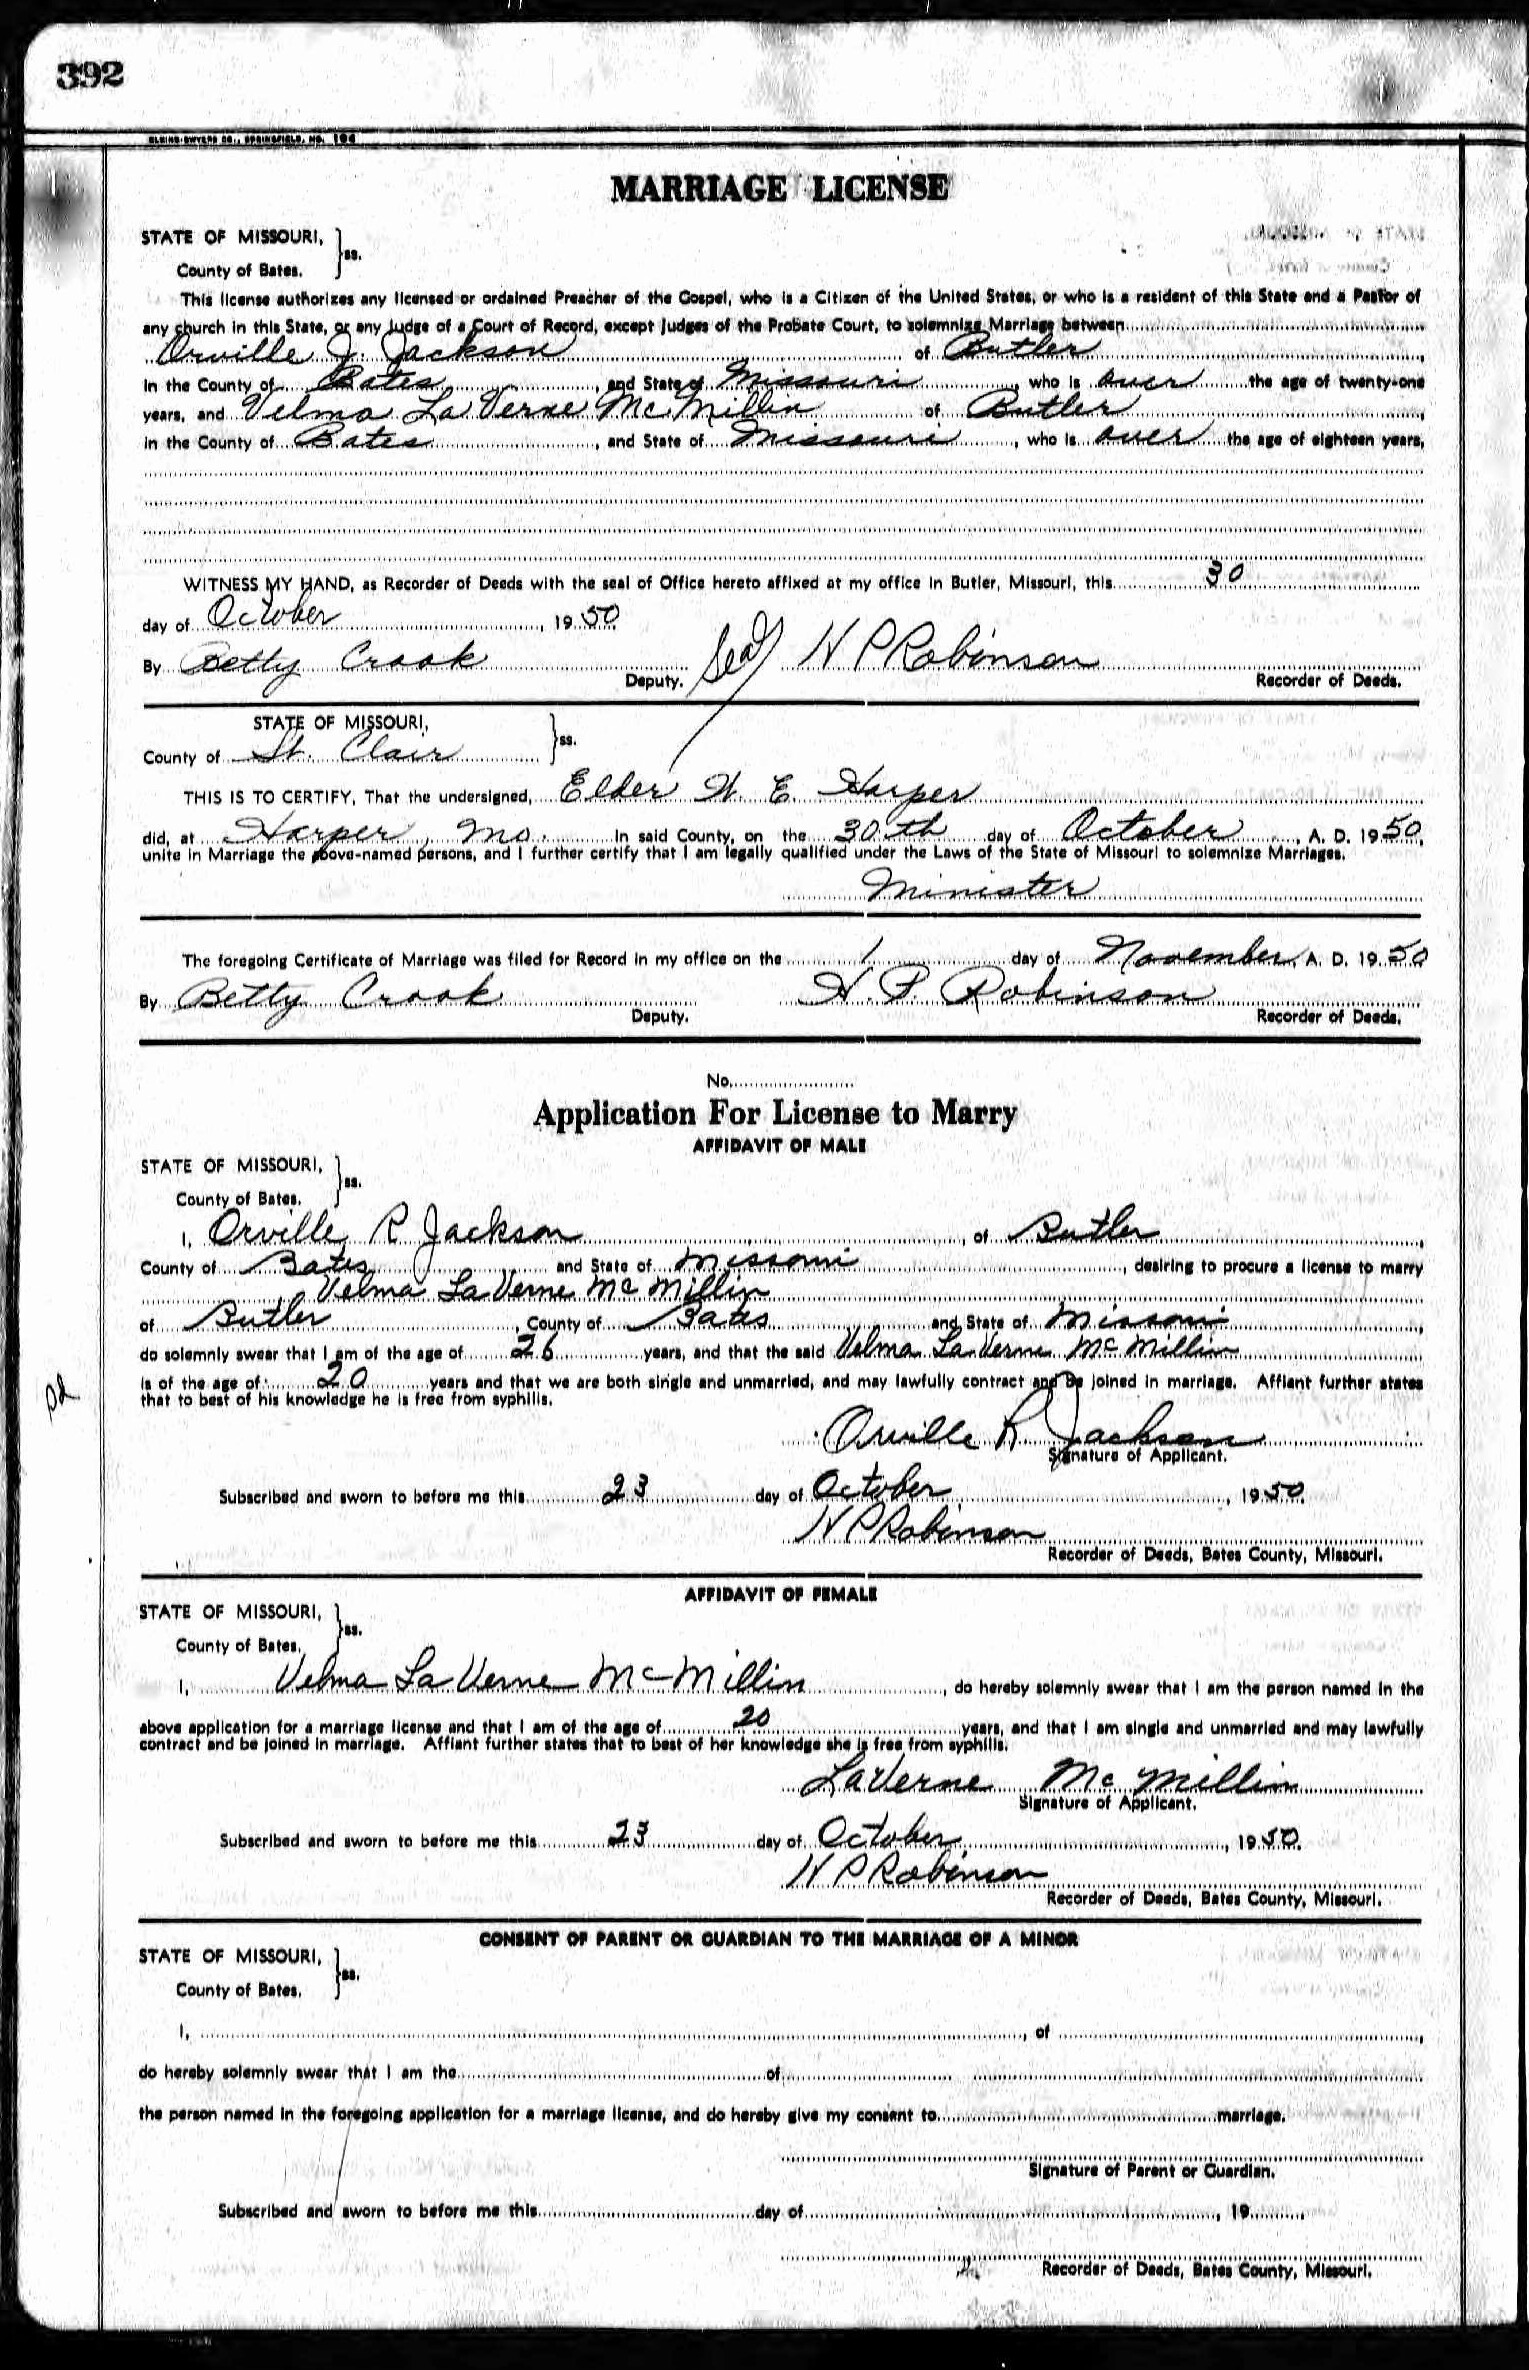 392
ELKINS-SWYERS CO., SPRINGFIELD, MO. 194
MARRIAGE LICENSE
STATE OF MISSOURI,
ss.
County of Bates.
This license authorizes any licensed or ordained Preacher of the Gospel, who is a Citizen of the United States, or who is a resident of this State and a Pastor of
any church in this State, or any Judge of a Court of Record, except Judges of the Probate Court, to solemnize Marriage between
Orville J. Jackson of Butler
in the County of Bates, and State of Missouri, who is over the age of twenty-one
years, and Velma La Verne Mc Millin of Butler,
in the County of Bates, and State of Missouri, who is over the age of eighteen years,
WITNESS MY HAND, as Recorder of Deeds with the seal of Office hereto affixed at my office in Butler, Missouri, this 30
day of October, 1950
By Betty Crook Deputy. Seal H P Robinson Recorder of Deeds.
STATE OF MISSOURI,
ss.
County of St. Clair
THIS IS TO CERTIFY, That the undersigned, Elder H. E. Harper
did, at Harper, Mo. in said County, on the 30th day of October, A. D. 1950,
unite in Marriage the above-named persons, and I further certify that I am legally qualified under the Laws of the State of Missouri to solemnize Marriages.
Minister
The foregoing Certificate of Marriage was filed for Record in my office on the 1 day of November, A. D. 1950
By Betty Crook Deputy. H. P. Robinson Recorder of Deeds.
No.
Application For License to Marry
AFFIDAVIT OF MALE
STATE OF MISSOURI,
ss.
County of Bates.
I, Orville R Jackson, of Butler,
County of Bates and State of Missouri, desiring to procure a license to marry
Velma La Verne Mc Millin
of Butler, County of Bates and State of Missouri,
do solemnly swear that I am of the age of 26 years, and that the said Velma La Verne Mc Millin
is of the age of 20 years and that we are both single and unmarried, and may lawfully contract and be joined in marriage. Affiant further states
that to best of his knowledge he is free from syphilis.
Pd
Orville R Jackson
Signature of Applicant.
Subscribed and sworn to before me this 23 day of October, 1950.
H P Robinson
Recorder of Deeds, Bates County, Missouri.
AFFIDAVIT OF FEMALE
STATE OF MISSOURI,
ss.
County of Bates.
I, Velma La Verne McMillin, do hereby solemnly swear that I am the person named in the
above application for a marriage license and that I am of the age of 20 years, and that I am single and unmarried and may lawfully
contract and be joined in marriage. Affiant further states that to best of her knowledge she is free from syphilis.
LaVerne Mc Millin
Signature of Applicant.
Subscribed and sworn to before me this 23 day of October, 1950.
H P Robinson
Recorder of Deeds, Bates County, Missouri.
CONSENT OF PARENT OR GUARDIAN TO THE MARRIAGE OF A MINOR
STATE OF MISSOURI,
ss.
County of Bates.
I, , of ,
do hereby solemnly swear that I am the of
the person named in the foregoing application for a marriage license, and do hereby give my consent to marriage.
Signature of Parent or Guardian.
Subscribed and sworn to before me this day of , 19
Recorder of Deeds, Bates County, Missouri.